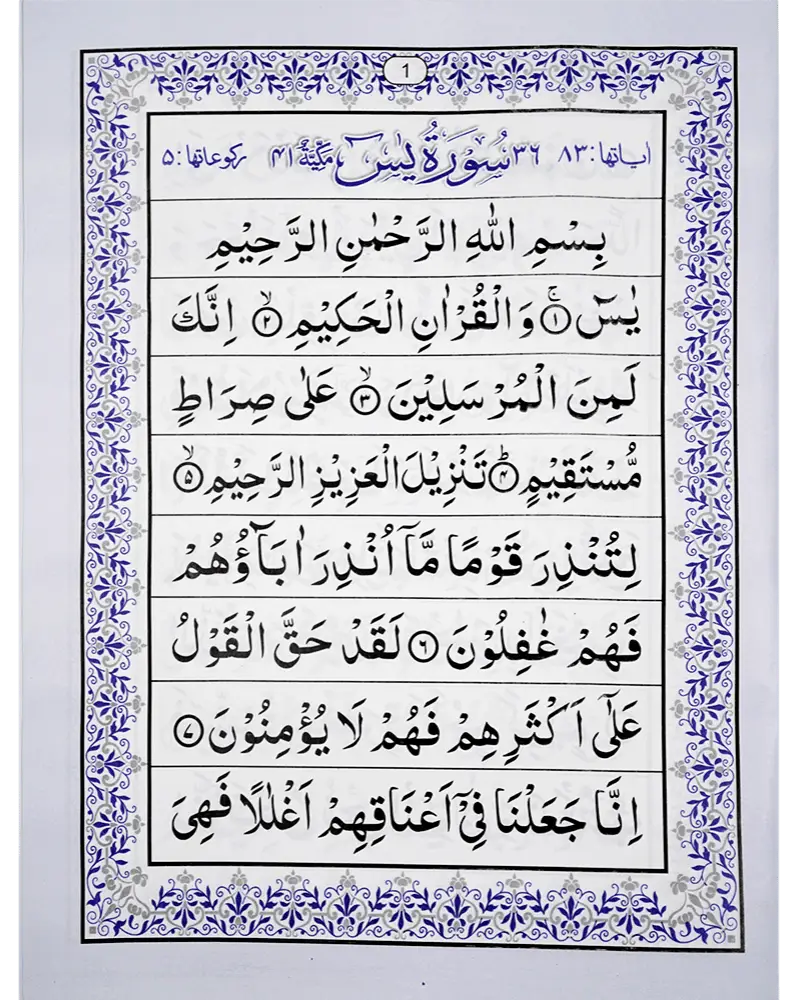 1
اٰیاتها: ۸۳ ۳۶ سُوْرَةُ یٰسٓ مَكِّیَّةٌ ۴۱ رکوعاتها: ۵
بِسْمِ اللّٰهِ الرَّحْمٰنِ الرَّحِیْمِ
یٰسٓ ۚ﴿۱﴾ وَ الْقُرْاٰنِ الْحَكِیْمِ ۙ﴿۲﴾ اِنَّكَ
لَمِنَ الْمُرْسَلِیْنَ ۙ﴿۳﴾ عَلٰی صِرَاطٍ
مُّسْتَقِیْمٍ ؕ﴿۴﴾ تَنْزِیْلَ الْعَزِیْزِ الرَّحِیْمِ ۙ﴿۵﴾
لِتُنْذِرَ قَوْمًا مَّاۤ اُنْذِرَ اٰبَآؤُهُمْ
فَهُمْ غٰفِلُوْنَ ﴿۶﴾ لَقَدْ حَقَّ الْقَوْلُ
عَلٰۤی اَكْثَرِهِمْ فَهُمْ لَا یُؤْمِنُوْنَ ﴿۷﴾
اِنَّا جَعَلْنَا فِیْۤ اَعْنَاقِهِمْ اَغْلٰلًا فَهِیَ